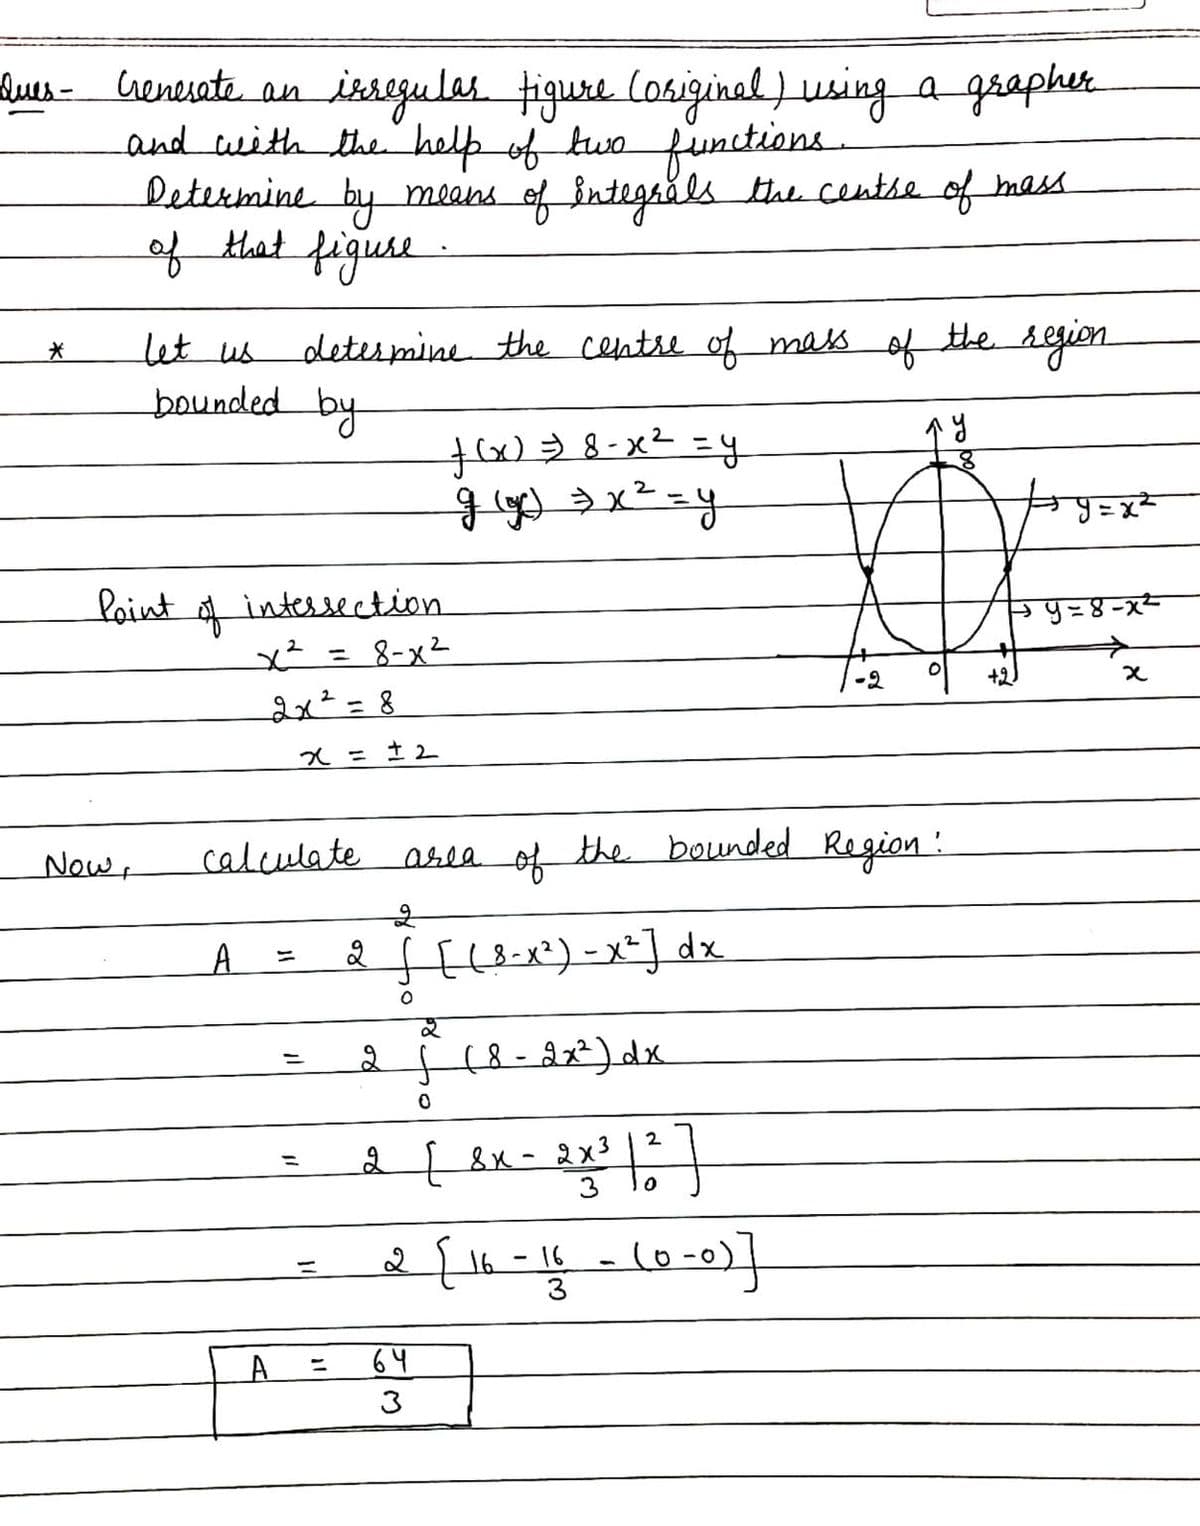 Ques- Generate an irregular figure (original) using a grapher
and with the help of two functions.
Determine by means of integrals the centre of mass
of that figure.
* let us determine the centre of mass of the region
bounded by
f(x) ⇒ 8-x² = y
g(x) ⇒ x² = y
y
8
→ y=x²
→ y=8-x²
-2 0 +2 x
Point of intersection
x² = 8-x²
2x² = 8
x = ±2
Now, calculate area of the bounded Region:
A = 2 ∫₀² [(8-x²)-x²] dx
= 2 ∫₀² (8-2x²) dx
= 2 [ 8x - 2x³/3 |₀² ]
= 2 [ 16 - 16/3 - (0-0) ]
A = 64/3